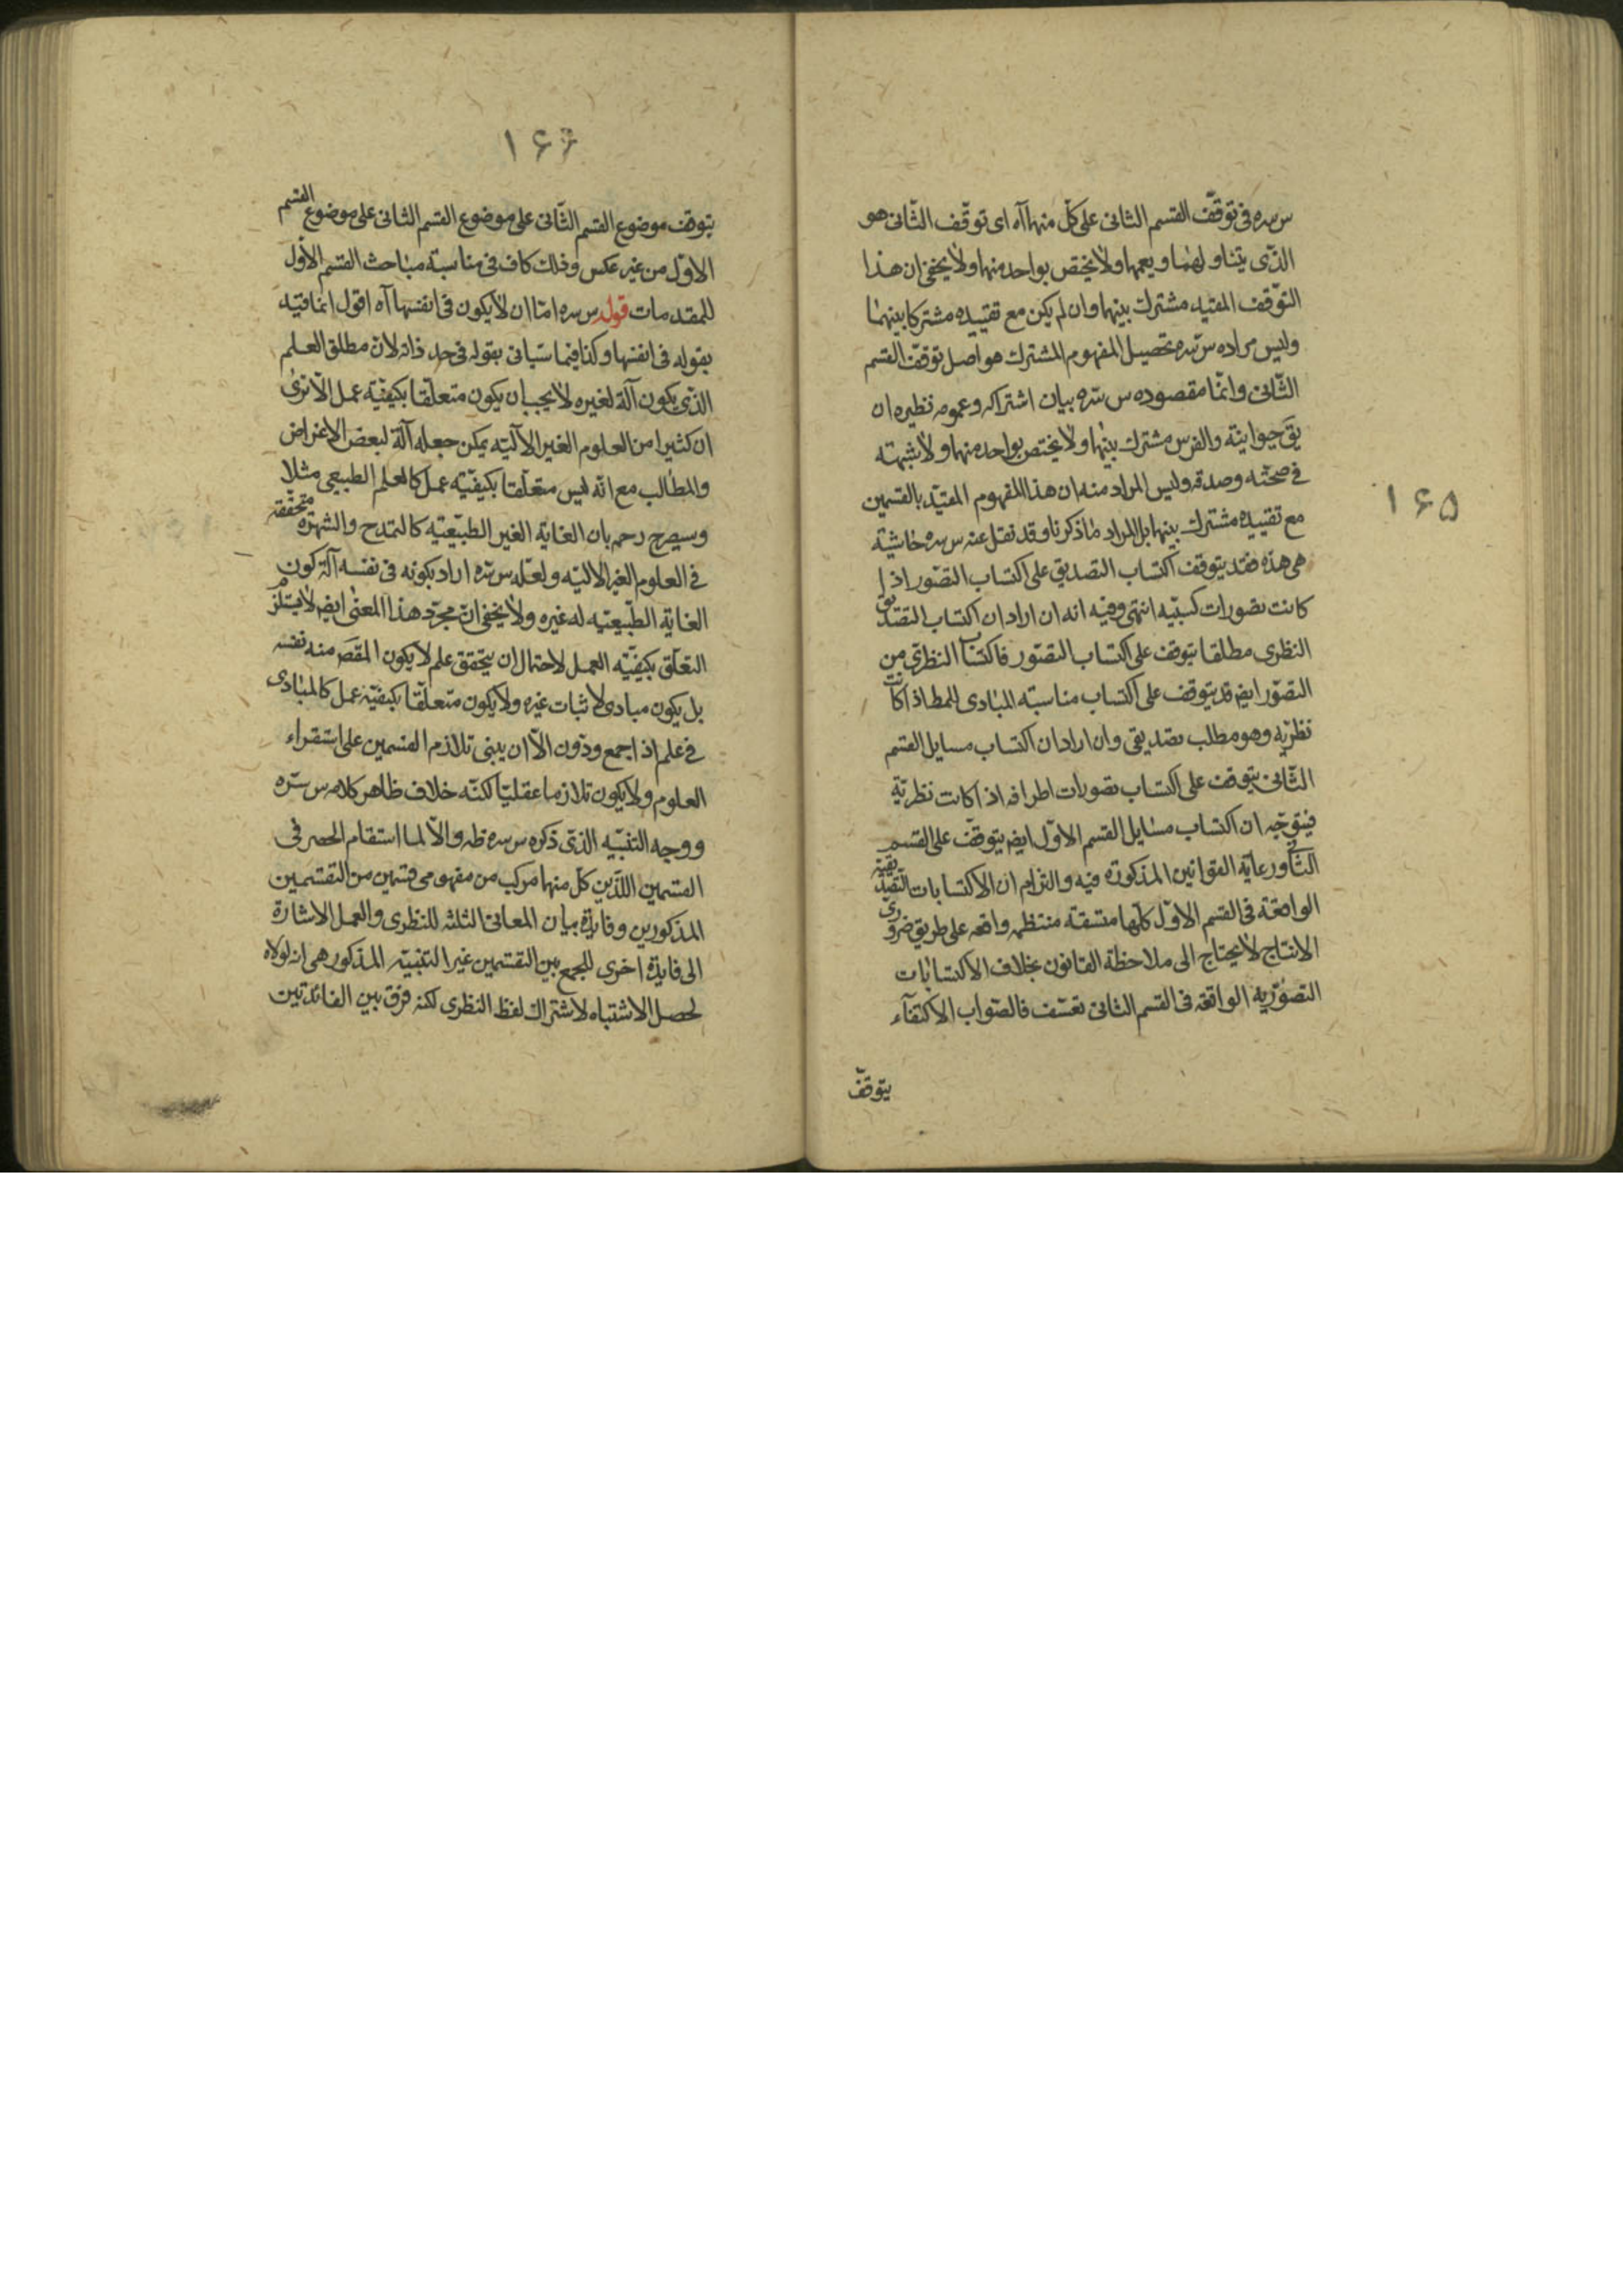 ۱۶۵
س سره فى توقّف القسم الثانى على كلّ منهما آه اى توقّف الثّانى هو
الذّى يتناولهما ويعمها ولا يختص بواحد منهما ولا يخفى ان هذا
التوّقف المقيد مشترك بينهما وان لم يكن مع تقييده مشتركا بينهما
وليس مراده س سّره تحصيل المفهوم المشترك هو اصل توقّف القسم
الثّانى وانمّا مقصوده س سّره بيان اشتراكه وعمومه نظيره ان
يق حيوانيته والفرس مشترك بينهما ولا يختص بواحد منهما ولا شبهته
فى صحّته وصدقه وليس المراد منه ان هذا المفهوم المقيّد بالقسمين
مع تقييده مشترك بينهما بل المراد ما ذكرنا وقد نقل عنه س سره حاشية
هى هذه فقد يتوقف اكتساب التصديق على اكتساب التصّور اذا
كانت تصورات كسبيّه انتهى وفيه انه ان اراد ان اكتساب التصديق
النظرى مطلقا يتوقف على اكتساب التصّور فاكتساب النظرى من
التصّور ايضر قد يتوقف على اكتساب مناسبته المبادى للمط اذا كانت
نظرّيه وهو مطلب تصديقى وان اراد ان اكتساب مسايل القسم
الثّانى يتوقف على اكتساب تصورات اطرافه اذا كانت نظريّة
فيتوجّه ان اكتساب مسايل القسم الاوّل ايضر يتوقّف على القسم
الثانى ورعاية القوانين المذكورة فيه والتزام ان الاكتسابات التصديقيّة
الواقعة فى القسم الاوّل كلّها متسقة منتظمه واقعه على طريق ضرورى
الانتاج لا يحتاج الى ملاحظة القانون بخلاف الاكتسابات
التصوّريه الواقعه فى القسم الثانى تعسّف فالصّواب الاكتفآء
يتوقّف
۱۶۶
يتوقف موضوع القسم الثّانى على موضوع القسم الثانى على موضوع القسم
الاوّل من غير عكس وذلك كاف فى مناسبة مباحث القسم الاول
للمقدمات قوله س سره امّا ان لا يكون فى انفسها آه اقول انما قيد
بقوله فى انفسها وكذا فيما سيّاتى بقوله فى حد ذاته لان مطلق العلم
الذّى يكون آلة لغيره لا يجب ان يكون متعلّقا بكيفيّة عمل الّا ترى
ان كثيرا من العلوم الغير الآليّه يمكن جعله آلة لبعض الاغراض
والمطالب مع انّه ليس متعلّقا بكيفيّة عمل كالعلم الطبيعى مثلا
وسيصرح رحم بان الغاية الغير الطبّيعيّه كالتمدح والشهرة متحققه
فى العلوم الغير الاليّه ولعلّه س سّره اراد بكونه فى نفسه آلة كون
الغاية الطّبيعيّه له غيره ولا يخفى انّ مجرّد هذا المعنى ايضر لا يستلزم
التعلّق بكيفيّه العمل لاحتمال ان يتحقق علم لا يكون المقصَ منه نفسه
بل يكون مبادى لاثبات غيره ولا يكون متعلّقا بكيفيّة عمل كالمبادى
فى علم اذا جمع ودّون الّا ان يبنى تلازم القسمين على استقراء
العلوم ولا يكون تلازما عقليّا لكنّه خلاف ظاهر كلامه س سّره
ووجه التنبيه الذّى ذكره س سره ظه والّا لما استقام الحصر فى
القسمين اللذّين كلّ منهما مركب من مفهومى قسمين من التقسمين
المذكورين وفايدة بيان المعانى الثلثه للنظرى والعمل الاشارة
الى فايدة اخرى للجمع بين التقسّمين غير التنبيّه المذكور هى انه لولاه
لحصل الاشتباه لاشتراك لفظ النظرى لكنه فرّق بين الفائدتين